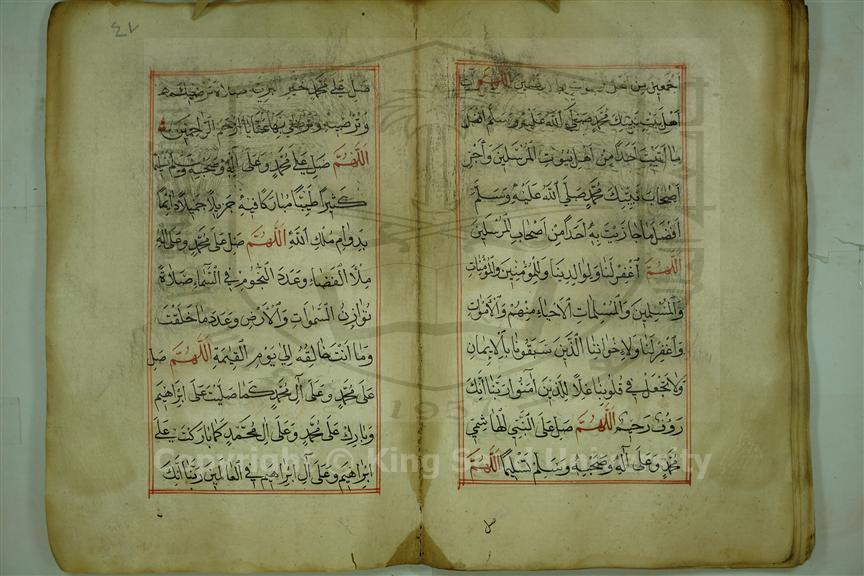 أجمعين من أهل اللهم وآت
أهل بيت نبيك محمد صلى الله عليه وسلم أفضل
ما آتيت أحدا من أهل بيوت المرسلين وأجز
أصحاب نبيك محمد صلى الله عليه وسلم
أفضل ما جازيت به أحدا من أصحاب المرسلين
اللهم اغفر لنا ولوالدينا وللمؤمنين والمؤمنات
والمسلمين والمسلمات الأحياء منهم والأموات
واغفر لنا ولإخواننا الذين سبقونا بالإيمان
ولا تجعل في قلوبنا غلا للذين آمنوا ربنا إنك
رؤف رحيم اللهم صل على النبي الهاشمي
محمد وعلى آله وصحبه وسلم تسليما اللهم
صل
٤٧
صل على محمد خير البرية صلاة ترضيك
وترضيه وترضى بها عنا يا أرحم الراحمين
اللهم صل على محمد وعلى آله وصحبه وسلم
كثيرا طيبا مباركا فيه جزيلا جميلا دائما
بدوام ملك الله اللهم صل على محمد وعلى آله
ملأ الفضاء وعدد النجوم في السماء صلاة
توازن السموات والأرض وعدد ما خلقت
وما أنت خالقه إلى يوم القيمة اللهم صل
على محمد وعلى آل محمد كما صليت على ابراهيم
وبارك على محمد وعلى آل محمد كما باركت على
ابراهيم وعلى آل ابراهيم في العالمين ربنا إنك
Copyright © King Saud University
195